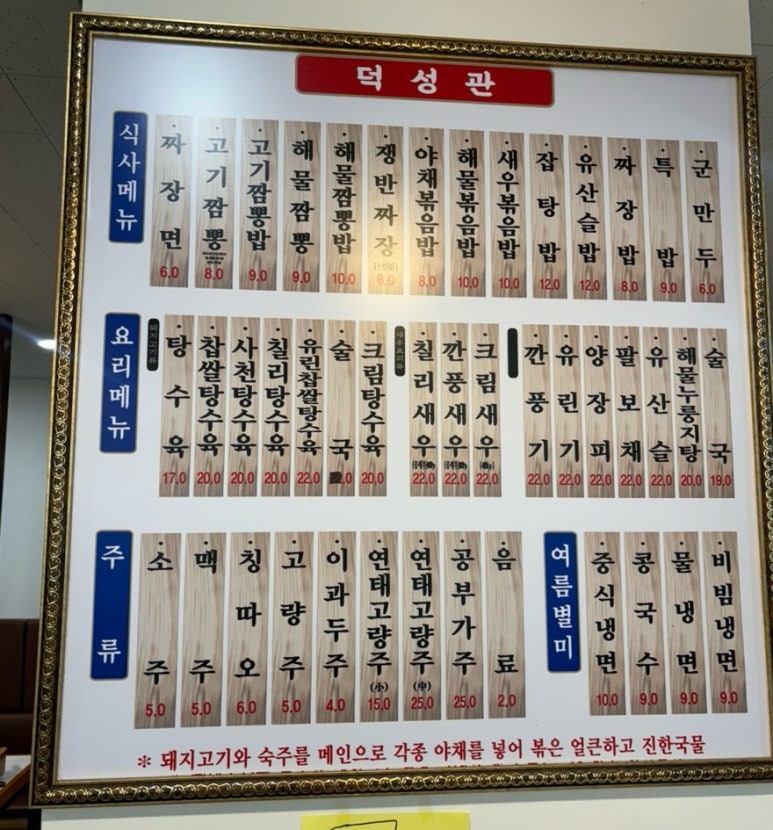 덕성관
식사메뉴
짜장면 6.0
고기짬뽕 8.0
고기짬뽕밥 9.0
해물짬뽕 9.0
해물짬뽕밥 10.0
쟁반짜장 (1인분) 8.0
야채볶음밥 8.0
해물볶음밥 10.0
새우볶음밥 10.0
잡탕밥 12.0
유산슬밥 12.0
짜장밥 8.0
특밥 9.0
군만두 6.0
요리메뉴
돼지고기류
탕수육 17.0
찹쌀탕수육 20.0
사천탕수육 20.0
칠리탕수육 20.0
유린찹쌀탕수육 22.0
술국
크림탕수육 20.0
새우요리류
칠리새우 22.0
깐풍새우 22.0
크림새우 22.0
깐풍기 22.0
유린기 22.0
양장피 22.0
팔보채 22.0
유산슬 22.0
해물누룽지탕 20.0
술국 19.0
주류
소주 5.0
맥주 5.0
칭따오 6.0
고량주 5.0
이과두주 4.0
연태고량주 (小) 15.0
연태고량주 (中) 25.0
공부가주 25.0
음료 2.0
여름별미
중식냉면 10.0
콩국수 9.0
물냉면 9.0
비빔냉면 9.0
※ 돼지고기와 숙주를 메인으로 각종 야채를 넣어 볶은 얼큰하고 진한국물